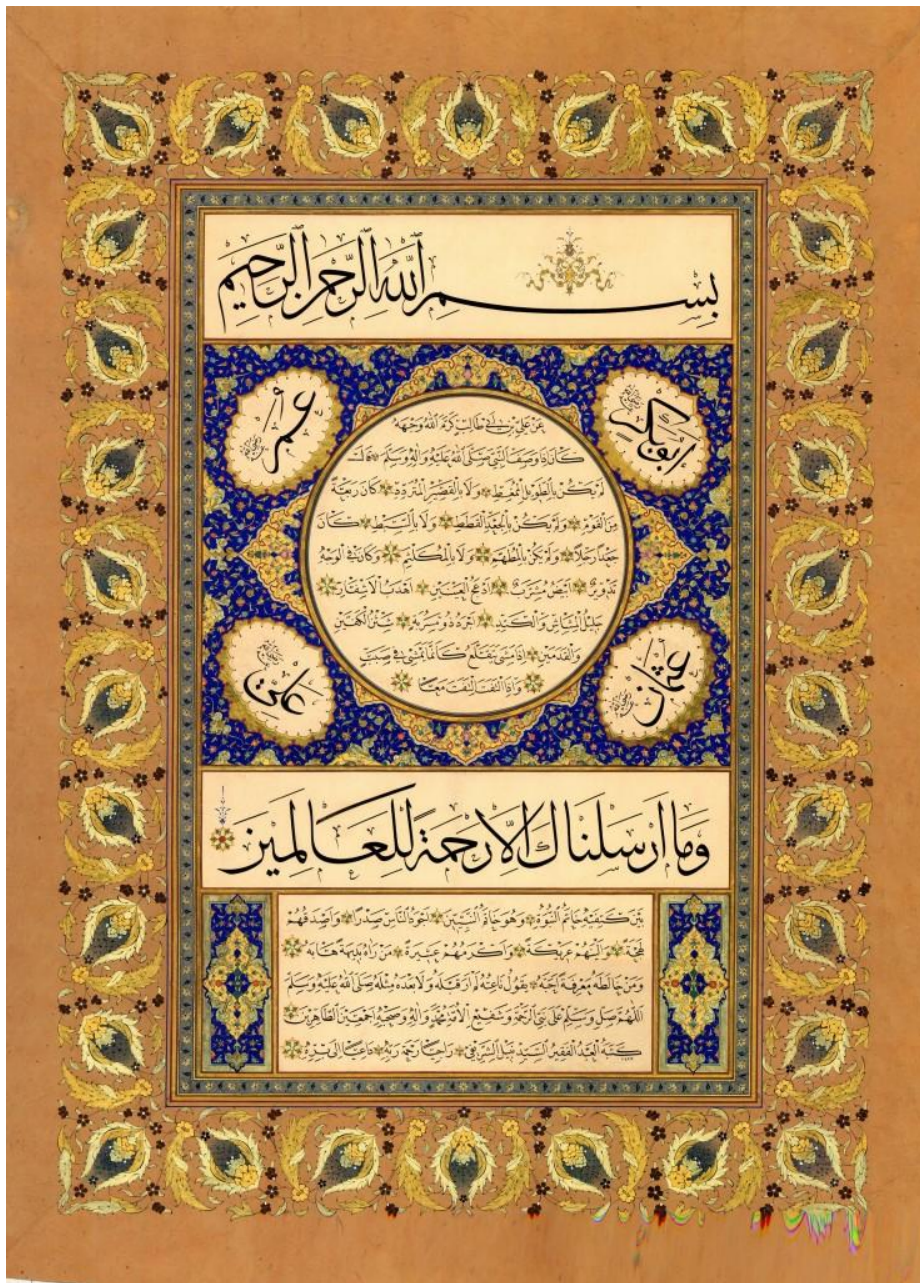 بِسْمِ اللّٰهِ الرَّحْمٰنِ الرَّحِيمِ
ابوبكر رضي الله عنه
عمر رضي الله عنه
عَنْ عَلِيِّ بْنِ أَبِي طَالِبٍ كَرَّمَ اللّٰهُ وَجْهَهُ
كَانَ إِذَا وَصَفَ النَّبِيَّ صَلَّى اللّٰهُ عَلَيْهِ وَآلِهِ وَسَلَّمَ قَالَ
لَمْ يَكُنْ بِالطَّوِيلِ الْمُمَّغِطِ وَلَا بِالْقَصِيرِ الْمُتَرَدِّدِ كَانَ رَبْعَةً
مِنَ الْقَوْمِ وَلَمْ يَكُنْ بِالْجَعْدِ الْقَطَطِ وَلَا بِالسَّبِطِ كَانَ
جَعْدًا رَجِلًا وَلَمْ يَكُنْ بِالْمُطَهَّمِ وَلَا بِالْمُكَلْثَمِ وَكَانَ فِي الْوَجْهِ
تَدْوِيرٌ أَبْيَضُ مُشْرَبٌ أَدْعَجُ الْعَيْنَيْنِ أَهْدَبُ الْأَشْفَارِ
جَلِيلُ الْمُشَاشِ وَالْكَتَدِ أَجْرَدُ ذُو مَسْرُبَةٍ شَثْنُ الْكَفَّيْنِ
وَالْقَدَمَيْنِ إِذَا مَشَى يَتَقَلَّعُ كَأَنَّمَا يَمْشِي فِي صَبَبٍ
وَإِذَا الْتَفَتَ الْتَفَتَ مَعًا
عثمان رضي الله عنه
علي رضي الله عنه
وَمَا أَرْسَلْنَاكَ إِلَّا رَحْمَةً لِلْعَالَمِينَ
بَيْنَ كَتِفَيْهِ خَاتَمُ النُّبُوَّةِ وَهُوَ خَاتَمُ النَّبِيِّينَ أَجْوَدُ النَّاسِ صَدْرًا وَأَصْدَقُهُمْ
لَهْجَةً وَأَلْيَنُهُمْ عَرِيكَةً وَأَكْرَمُهُمْ عَشِيرَةً مَنْ رَآهُ بَدِيهَةً هَابَهُ
وَمَنْ خَالَطَهُ مَعْرِفَةً أَحَبَّهُ يَقُولُ نَاعِتُهُ لَمْ أَرَ قَبْلَهُ وَلَا بَعْدَهُ مِثْلَهُ صَلَّى اللّٰهُ عَلَيْهِ وَسَلَّمَ
اللّٰهُمَّ صَلِّ وَسَلِّمْ عَلَى نَبِيِّ الرَّحْمَةِ وَشَفِيعِ الْأُمَّةِ مُحَمَّدٍ وَآلِهِ وَصَحْبِهِ أَجْمَعِينَ الطَّاهِرِينَ
كَتَبَهُ الْعَبْدُ الْفَقِيرُ السَّيِّدُ نَبِيلُ الشَّرِيفِيُّ رَاجِيًا رَحْمَةَ رَبِّهِ دَاعِيًا إِلَى